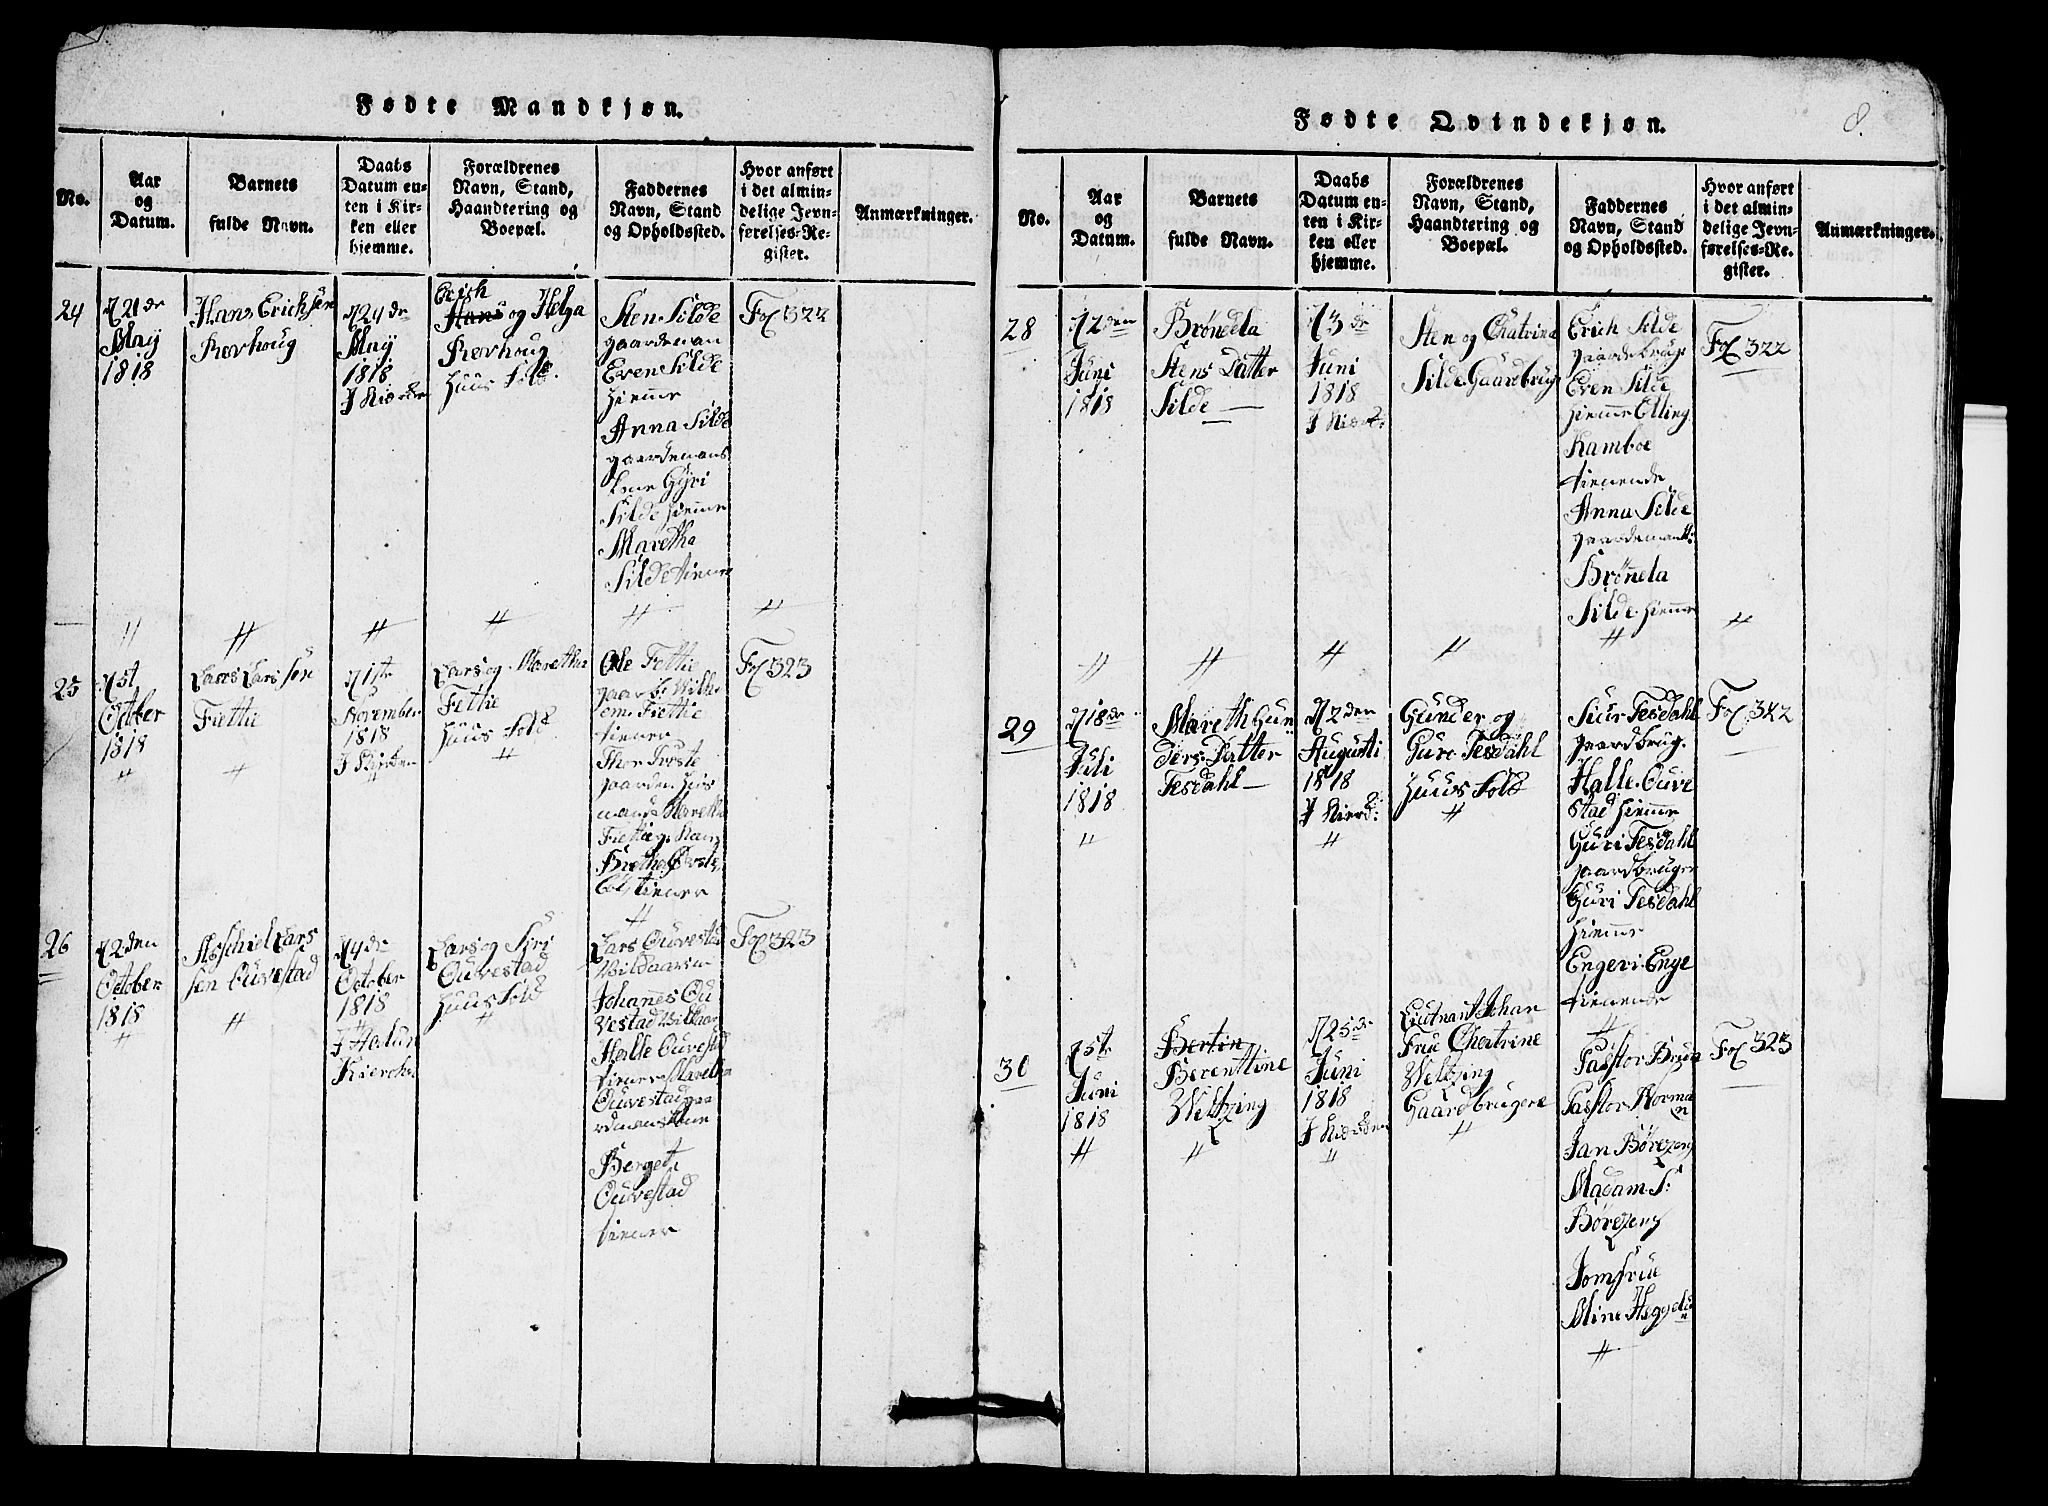 Fødte Mandkjøn.
No.
Aar
og
Datum.
Barnets
fulde Navn.
Daabs
Datum en-
ten i Kir-
ken eller
hjemme.
Forældrenes
Navn, Stand,
Haandtering og
Boepæl.
Faddernes
Navn, Stand
og Opholdssted.
Hvor anført
i det almin-
delige Jevn-
førelses-Re-
gister.
Anmærkninger.
24
21de
May
1818
Hans Erichsen
Rovhoug
24de
May
1818
Erich
Hans og Helga
Rovhoug
Huus Fold
Sten Silde
gaardeman
Even Silde
hiemme
Anna Silde
gaardemans
kone Gyri
Silde hiemme
Maretha
Silde tiener
Fol 322
25
October
1818
Lars Larssøn
Fiettie
1ste
November
1818
J Kyrken
Lars og Maretha
Fettie
Huus Fold
Ole Fettie
Fiettie
tiener
Thor
tiener
Fol 323
26
2den
October
1818
Aschiel Lars
sen Ouvestad
4de
October
1818
Lars og Siri
Ouvestad
Huus Fold
Lars Ouvestad
Johannes Ou
vestad
Halle Ouvestad
tiener Maretha
Ouvestad gaa
rdmans kone
Berget
Ouvestad
tiener
Fol 323
8.
Fødte Qvindekjøn.
No.
Aar
og
Datum.
Barnets
fulde Navn.
Daabs
Datum en-
ten i Kir-
ken eller
hjemme.
Forældrenes
Navn, Stand,
Haandtering og
Boepæl.
Faddernes
Navn, Stand
og Opholdssted.
Hvor anført
i det almin-
delige Jevn-
førelses-Re-
gister.
Anmærkninger.
28
2den
Juni
1818
Brønela
Stens Datter
Silde
3de
Juni
1818
Sten og Chatrina
Silde Gaardbrug
Erich Silde
gaardebrug
Even Silde
hiemme Elling
Kamboe
tienende
Anna Silde
gaardemans
Brønela
Silde hiemme
Fol 322
29
18de
Juli
1818
Mareth Gun
ders Datter
Tesdahl
2den
Augusti
1818
Gunder og
Guro Tesdahl
Huus Fold
Siur Tesdahl
gaardbrug.
Halle Ouve
stad hiemme
Guri Tesdahl
gaardbruger
Guri Tesdahl
hiemme
Engeri Enge
tienende
Fol 342
30
5te
Juni
1818
Bertin
Berenttine
Weltzing
25de
Juni
1818
Liutnant Johan
Frue Chatrine
Weltzing
Gaardbrugere
Passtor Bruun
Passtor Norma
n
Jan Børezeng
Madam S:
Børezeng
Jomfrue
Mine
Fol 323